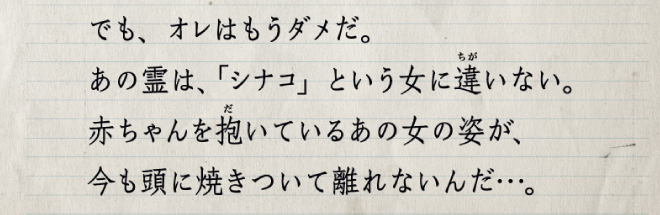 でも、オレはもうダメだ。
あの霊は、「シナコ」という女に違いない。
赤ちゃんを抱いているあの女の姿が、
今も頭に焼きついて離れないんだ…。